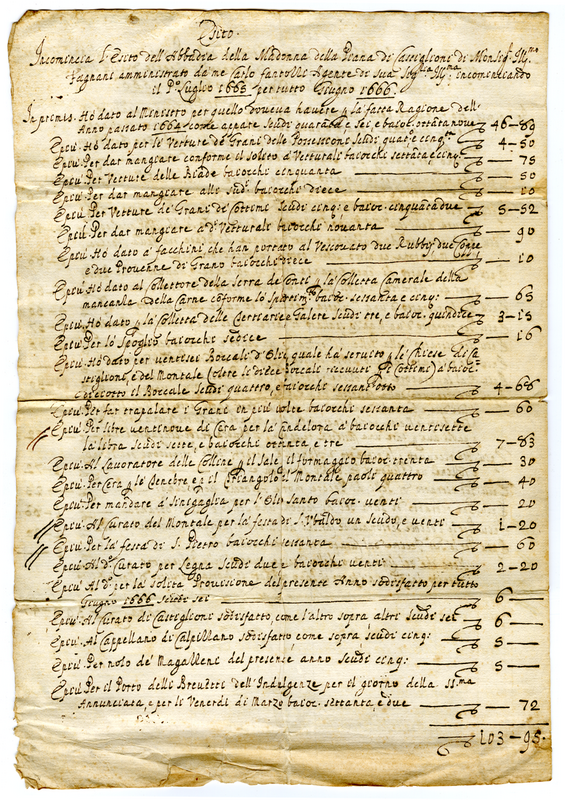 Esito.
Incomincia l'Esito dell'Abbadia della Madonna della Piana di Castiglioni di Monsig.r Ill.mo
Fagnani amministrato da me Carlo fantolli Agente di Sua Sig.ria Ill.ma incominciando
il P.o Luglio 1665 per tutto Giugno 1666.
In primis. Hò dato al Ministro per quello doveva havere p la fatta Ragione dell'
Anno passato 1664 come appare Scudi quaranta e sei, e baioc. ottantanove 46-89
E più. Hò dato per le Vetture de' Grani delle Possessioni Scudi quat.o e cinq.ta 4-50
E più. Per dar mangiare conforme il solito a' Vetturali baiocchi settanta, e cinq. 75
E più. Per Vetture delle Biade baiocchi cinquanta 50
E più. Per dar mangiare alli Sud.i baiocchi diece 10
E più. Per Vetture di Grani di Cottimi Scudi cinq; e baioc. cinquantadue 5-52
E più. Per dar mangiare a d.i Vetturali baiocchi novanta 90
E più. Hò dato a' facchini che han portato al Vescovato due Rubby, due Coppe
e due Provenne di Grano baiocchi diece 10
E più. Hò dato al Collettore della Serra de Conti p la Colletta Camerale della
mancanza della Carne conforme lo baioc. sessanta e cinq; 65
E più. Hò dato p la Colletta delle e Galere Scudi tre, e baioc. quindice 3-15
E più. Per lo Spoglio baiocchi sedice 16
E più. Hò dato per ventisei Boccali d'Olio quale hà servito p le Chiese di Ca
stiglioni, e del Montale (oltre li diece boccali ricevuti di Cottimi) a baioc.
diciotto il Boccale Scudi quattro, e baiocchi sessant'otto 4-68
E più. Per far trapalare i Grani in più volte baiocchi sessanta 60
E più. Per libre ventinove di Cera per la Candelora a' baiocchi ventisette
la libra Scudi sette, e baiocchi ottanta, e tre 7-83
E più. Al Lavoratore delle Colline p il sale, e il formaggio baioc. trenta 30
E più. Per Cera p le Tenebre e p il Triangolo il Montale paoli quattro 40
E più. Per mandare a Sinigaglia per l'Olio Santo baioc. venti 20
E più. Al Curato del Montale per la festa di S. Ubaldo un Scudo, e venti 1-20
E più. Per la festa di S. Pietro baiocchi sessanta 60
E più. Al d.o Curato per Legna Scudi due e baiocchi venti 2-20
E più. Al d.o per la solita Provisione del presente Anno sodisfatto per tutto
Giugno 1666 scudi sei 6
E più. Al Curato di Castiglioni sodisfatto come l'altro sopra altri Scudi sei 6
E più. Al Cappellano di Calpillano sodisfatto come sopra scudi cinq: 5
E più. Per nolo de' Magazzeni del presente anno Scudi cinq; 5
E più. Per il Porto delli Brevetti dell'Indulgenze per il giorno della SS.ma
Annunciata, e per li Venerdì di Marzo baioc. settanta, e due 72
103-95.